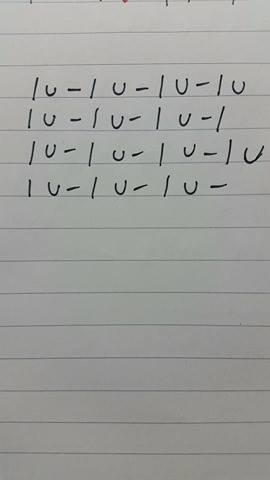 | ∪ – | ∪ – | ∪ – | ∪
| ∪ – | ∪ – | ∪ – |
| ∪ – | ∪ – | ∪ – | ∪
| ∪ – | ∪ – | ∪ –